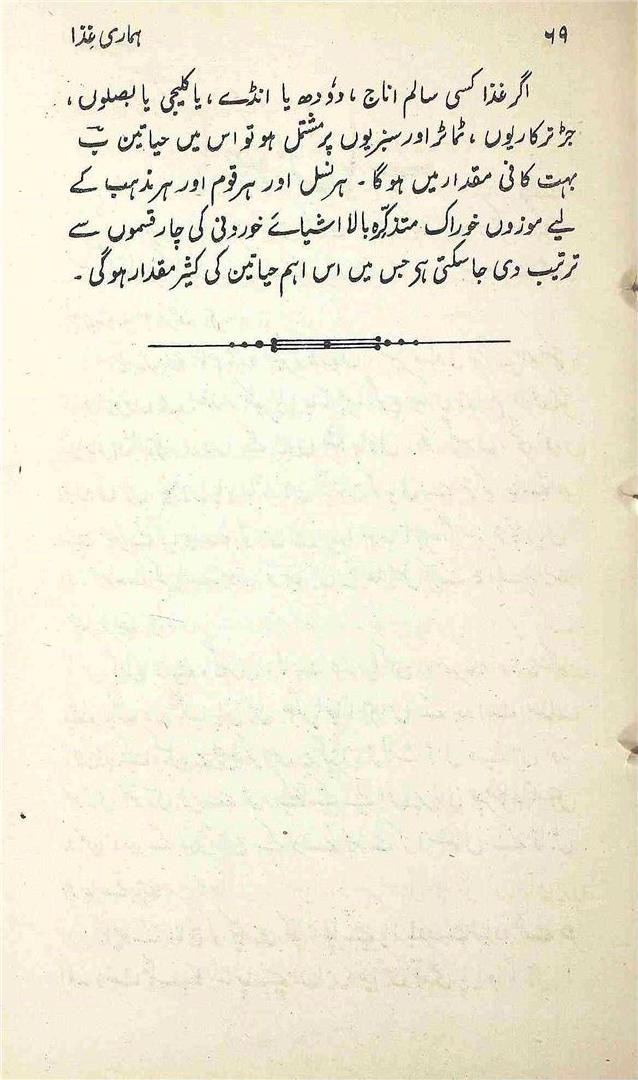 ۶۹ ہماری غذا
اگر غذا کسی سالم اناج ، دودھ یا انڈے ، یا کلیجی یا بصلوں ،
جڑ ترکاریوں ، ٹماٹر اور سبزیوں پر مشتمل ہو تو اس میں حیاتین ب
بہت کافی مقدار میں ہوگا ۔ ہر نسل اور ہر قوم اور ہر مذہب کے
لیے موزوں خوراک متذکرہ بالا اشیائے خوردنی کی چار قسموں سے
ترتیب دی جاسکتی ہی جس میں اس اہم حیاتین کی کثیر مقدار ہوگی ۔